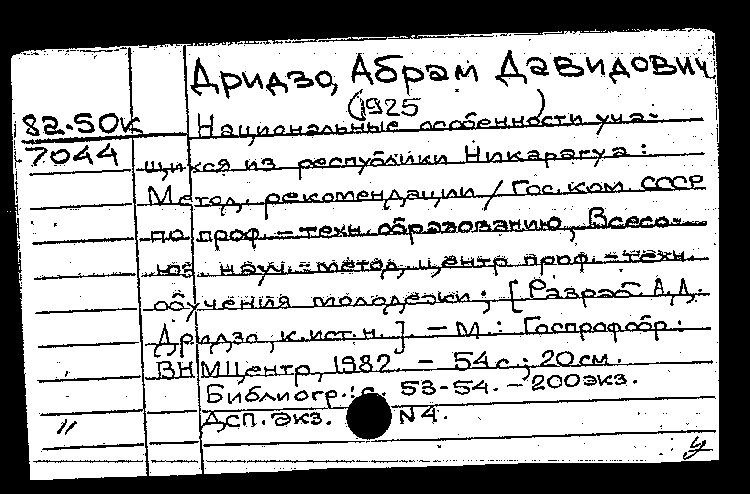 Дридзо, Абрам Давидович
(1925 )
82-50к
7044
Национальные особенности уча-
щихся из республики Никарагуа :
Метод. рекомендации / Гос. ком. СССР
по проф.-техн. образованию, Всесо-
юз. науч.-метод. центр проф.-техн.
обучения молодежи ; [Разраб. А.Д.
Дридзо, к.ист.н.]. - М. : Госпрофобр :
ВНМЦентр, 1982. - 54 с. ; 20 см.
Библиогр.: с. 53-54. - 200 экз.
ДСП. экз. N 4.
у